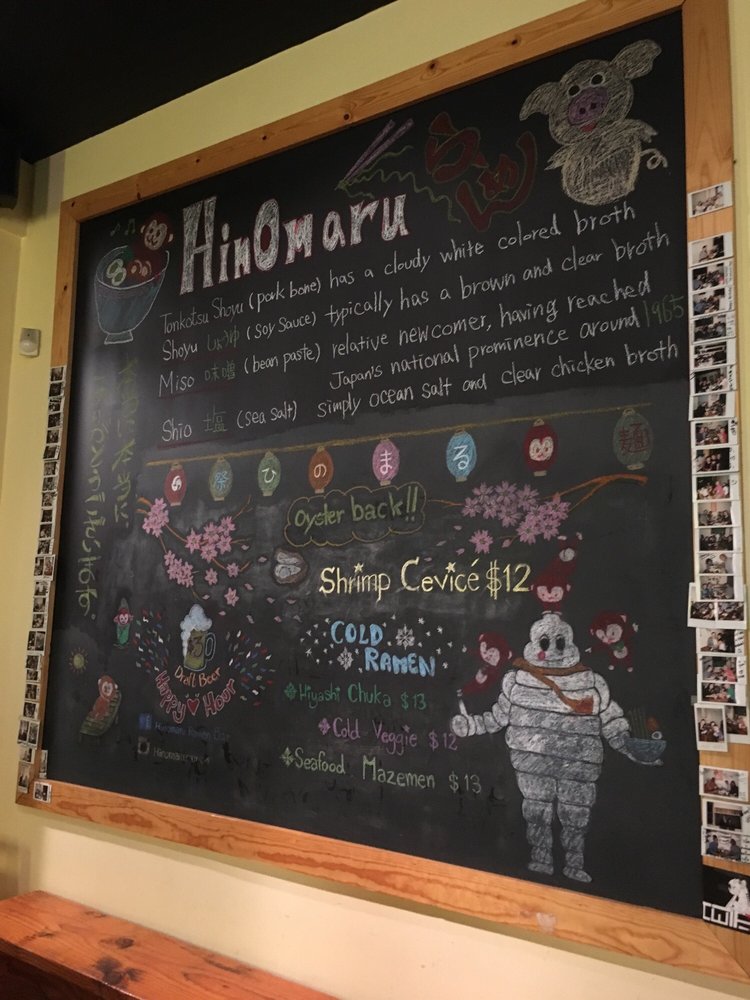 HinOmaru
Tonkotsu Shoyu (pork bone) has a cloudy white colored broth
Shoyu しょうゆ (Soy Sauce) typically has a brown and clear broth
Miso 味噌 (bean paste) relative newcomer, having reached
Japan's national prominence around 1965
Shio 塩 (sea salt) simply ocean salt and clear chicken broth
祭 ひ の ま る 麺
Oyster back!!
Shrimp Cevicé $12
COLD
RAMEN
Hiyashi Chuka $13
Cold Veggie $12
Seafood Mazemen $13
Draft Beer
Happy Hour
Hinomaru Ramen